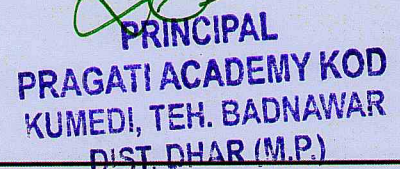 PRINCIPAL
PRAGATI ACADEMY KOD
KUMEDI, TEH. BADNAWAR
DIST. DHAR (M.P.)